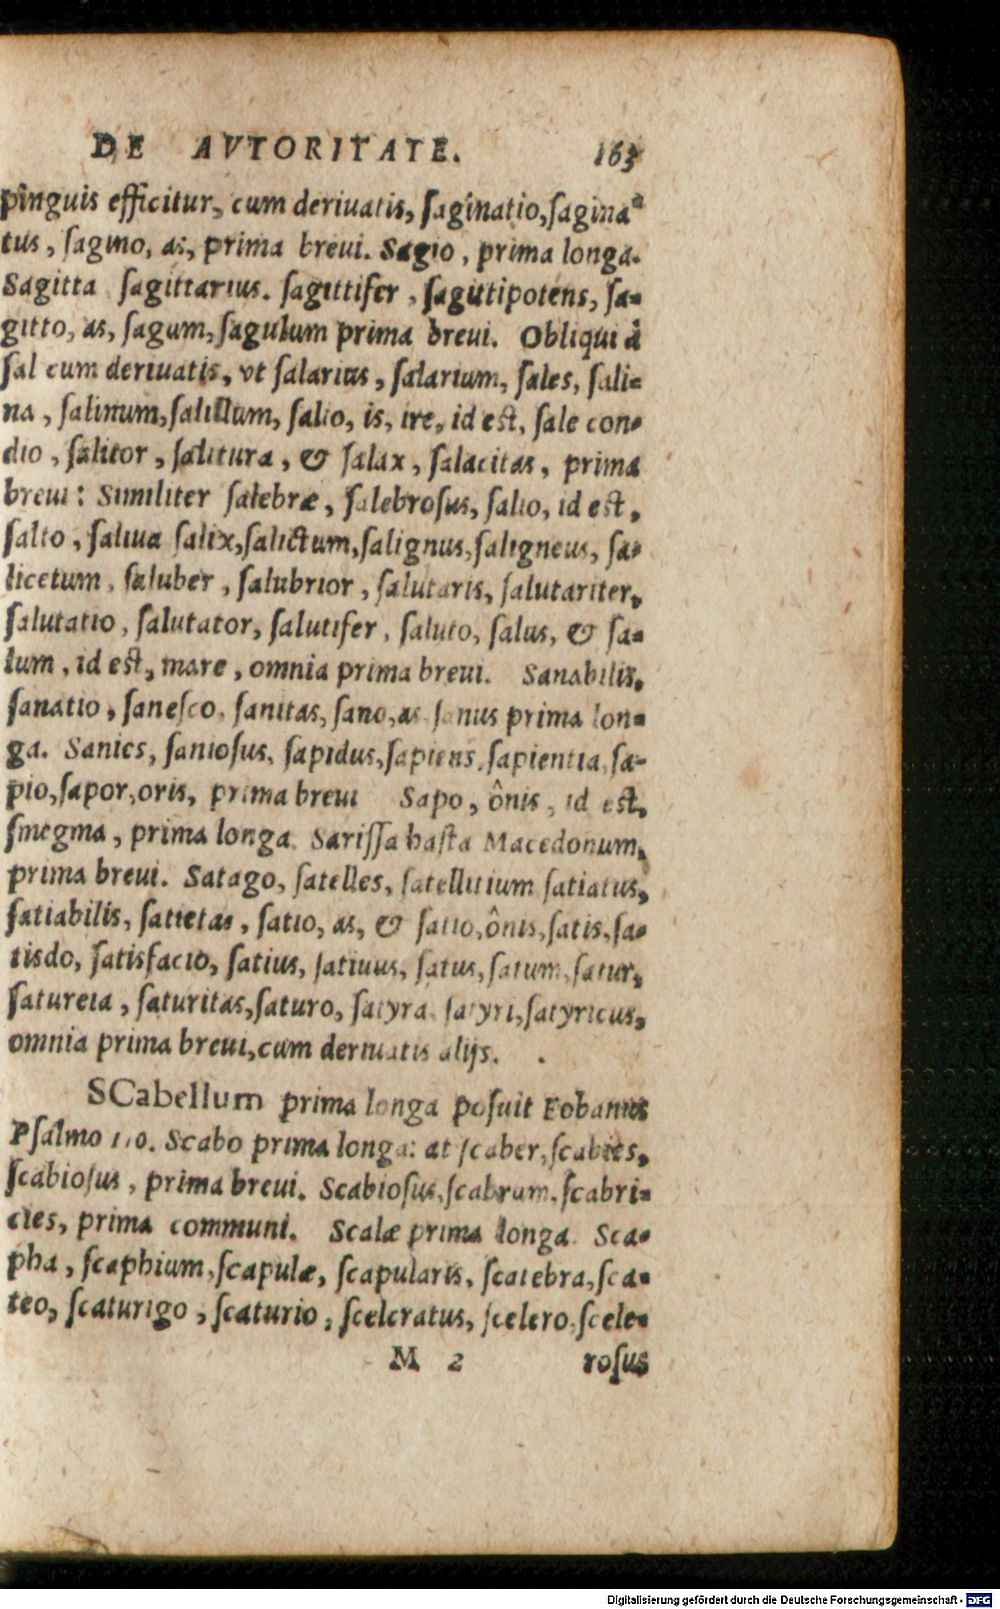 DE AVTORITATE. 163
pinguis efficitur, cum deriuatis, ſaginatio, ſagina-
tus, ſagino, as, prima breui. Sagio, prima longa.
Sagitta ſagittarius. ſagittifer, ſagittipotens, ſa-
gitto, as, ſagum, ſagulum prima breui. Obliqui à
ſal cum deriuatis, vt ſalarius, ſalarium, ſales, ſali-
na, ſalinum, ſalillum, ſalio, is, ire, id eſt, ſale con-
dio, ſalitor, ſalitura, & ſalax, ſalacitas, prima
breui: Similiter ſalebræ, ſalebroſus, ſalio, id eſt,
ſalto, ſaliua ſalix, ſalictum, ſalignus, ſaligneus, ſa-
licetum, ſaluber, ſalubrior, ſalutaris, ſalutariter,
ſalutatio, ſalutator, ſalutifer, ſaluto, ſalus, & ſa-
lum, id eſt, mare, omnia prima breui. Sanabilis,
ſanatio, ſaneſco, ſanitas, ſano, as ſanus prima lon-
ga. Sanies, ſanioſus, ſapidus, ſapiens, ſapientia, ſa-
pio, ſapor, oris, prima breui Sapo, ônis, id eſt,
ſmegma, prima longa. Sariſſa haſta Macedonum,
prima breui. Satago, ſatelles, ſatellitium ſatiatus,
ſatiabilis, ſatietas, ſatio, as, & ſatio, ônis, ſatis, ſa-
tisdo, ſatisfacio, ſatius, ſatiuus, ſatus, ſatum, ſatur,
ſatureia, ſaturitas, ſaturo, ſatyra, ſatyri, ſatyricus,
omnia prima breui, cum deriuatis alijs.
SCabellum prima longa poſuit Eobanus
Pſalmo 110. Scabo prima longa: at ſcaber, ſcabies,
ſcabioſus, prima breui. Scabioſus, ſcabrum, ſcabri-
cies, prima communi. Scalæ prima longa. Sca-
pha, ſcaphium, ſcapulæ, ſcapularis, ſcatebra, ſca-
teo, ſcaturigo, ſcaturio, ſceleratus, ſcelero, ſcele-
M 2 roſus
Digitalisierung gefördert durch die Deutsche Forschungsgemeinschaft - DFG